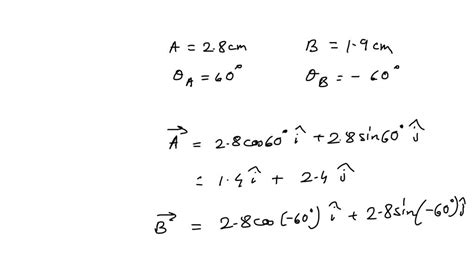 A = 2.8cm B = 1.9cm
θA = 60° θB = - 60°
A⃗ = 2.8cos60° î + 2.8sin60° ĵ
= 1.4 î + 2.4 ĵ
B⃗ = 2.8cos(-60°) î + 2.8sin(-60°)ĵ